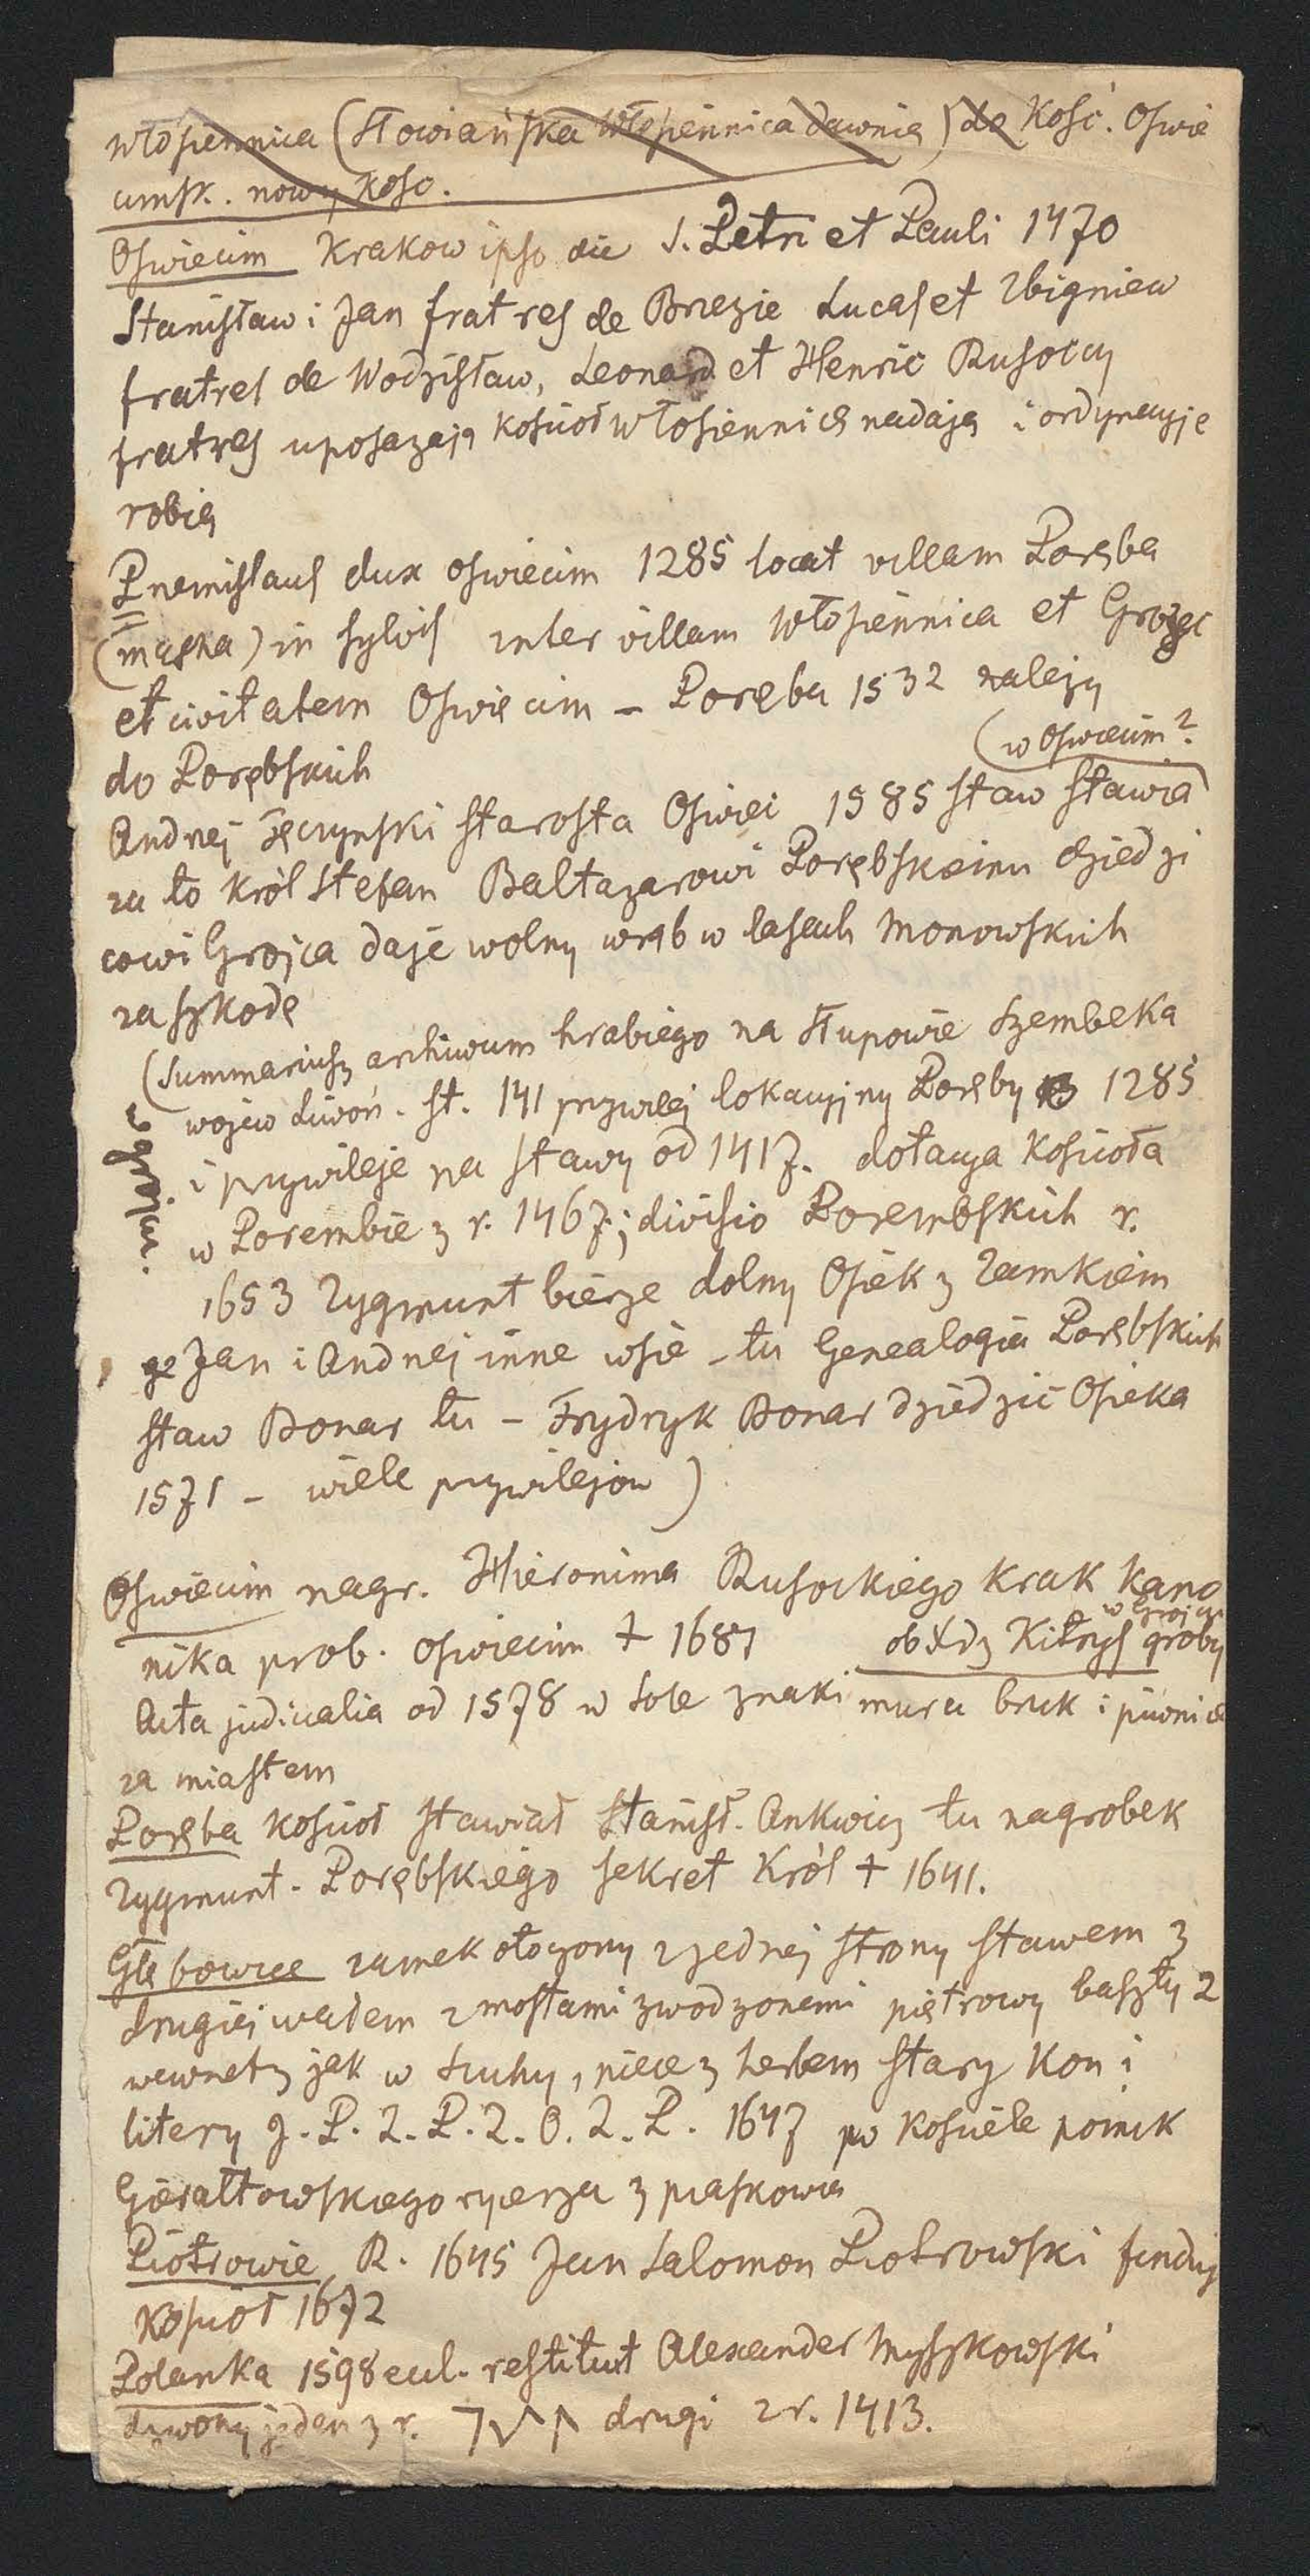 Włosiennica (Słowiańska Włosiennica dawnia) do Kość. Oswie
cimsk. nowy Kosc.
Oswiecim Krakow ipso die S. Petri et Pauli 1470
Stanisław i Jan fratres de Brzezie Lucas et Zbigniew
fratres de Wodzisław, Leonard et Henric Rusoccy
fratres uposażają Kosciół Włosiennicę nadają i ordynacyje
robią
Przemislaus dux oswiecim 1285 locat villam Poręba
(mąska) in sylvis inter villam Włosiennica et Grojec
et civitatem Oswięcim – Poręba 1532 należy
do Porębskich
(w Oswiecim?
Andrzej Tęczynski starosta Oswięc 1585 staw stawia
za to Król Stefan Baltazarowi Porębskiemu dziedzi
cowi Grojca daje wolny wrąb w lasach Monowskich
za szkodę
(Summariusz archiwum hrabiego na Słupowie Szembeka
wojew Liwoń. st. 141 przywilej lokacyjny Poręby 1285
w Grojcu.
i przywileje na stawy od 1417. dotacya Kościoła
w Porembie z r. 1467; divisio Porembskich r.
1653 Zygmunt bierze dolny Osiek z Zamkiem
Jan i Andrzej inne wsie – tu Genealogia Porębskich
staw Bonar tu – Frydryk Bonar dziedzic Osieka
1571 – wiele przywilejow)
Oswiecim nagr. Hieronima Rusockiego Krak Kano
nika prob. oswiecim † 1687 obł dz Kitrys groby
w Grojcu
Acta judicialia od 1578 w Sole znaki muru bruk i piwnice
za miastem
Poręba Kosciół stawiał Stanisł. Ankwicz tu nagrobek
Zygmunt. Porębskiego sekret Król † 1641.
Głębowice zamek otoczony z jednej strony stawem z
drugiej wałem z mostami zwodzonemi piętrowy baszty 2
wewnątrz jak w Suchy, piece z herbem stary Kon i
litery J. P. Z. P. Z. O. Z. P. 1647 po Kościele pomnk
Gierałtowskiego rycerza z piaskowca
Piotrowie R. 1645 Jan Salomon Piotrowski funduj
Kosciół 1672
Polanka 1598 eccl. restituit Alexander Myszkowski
dzwony jeden z r. drugi z r. 1413.